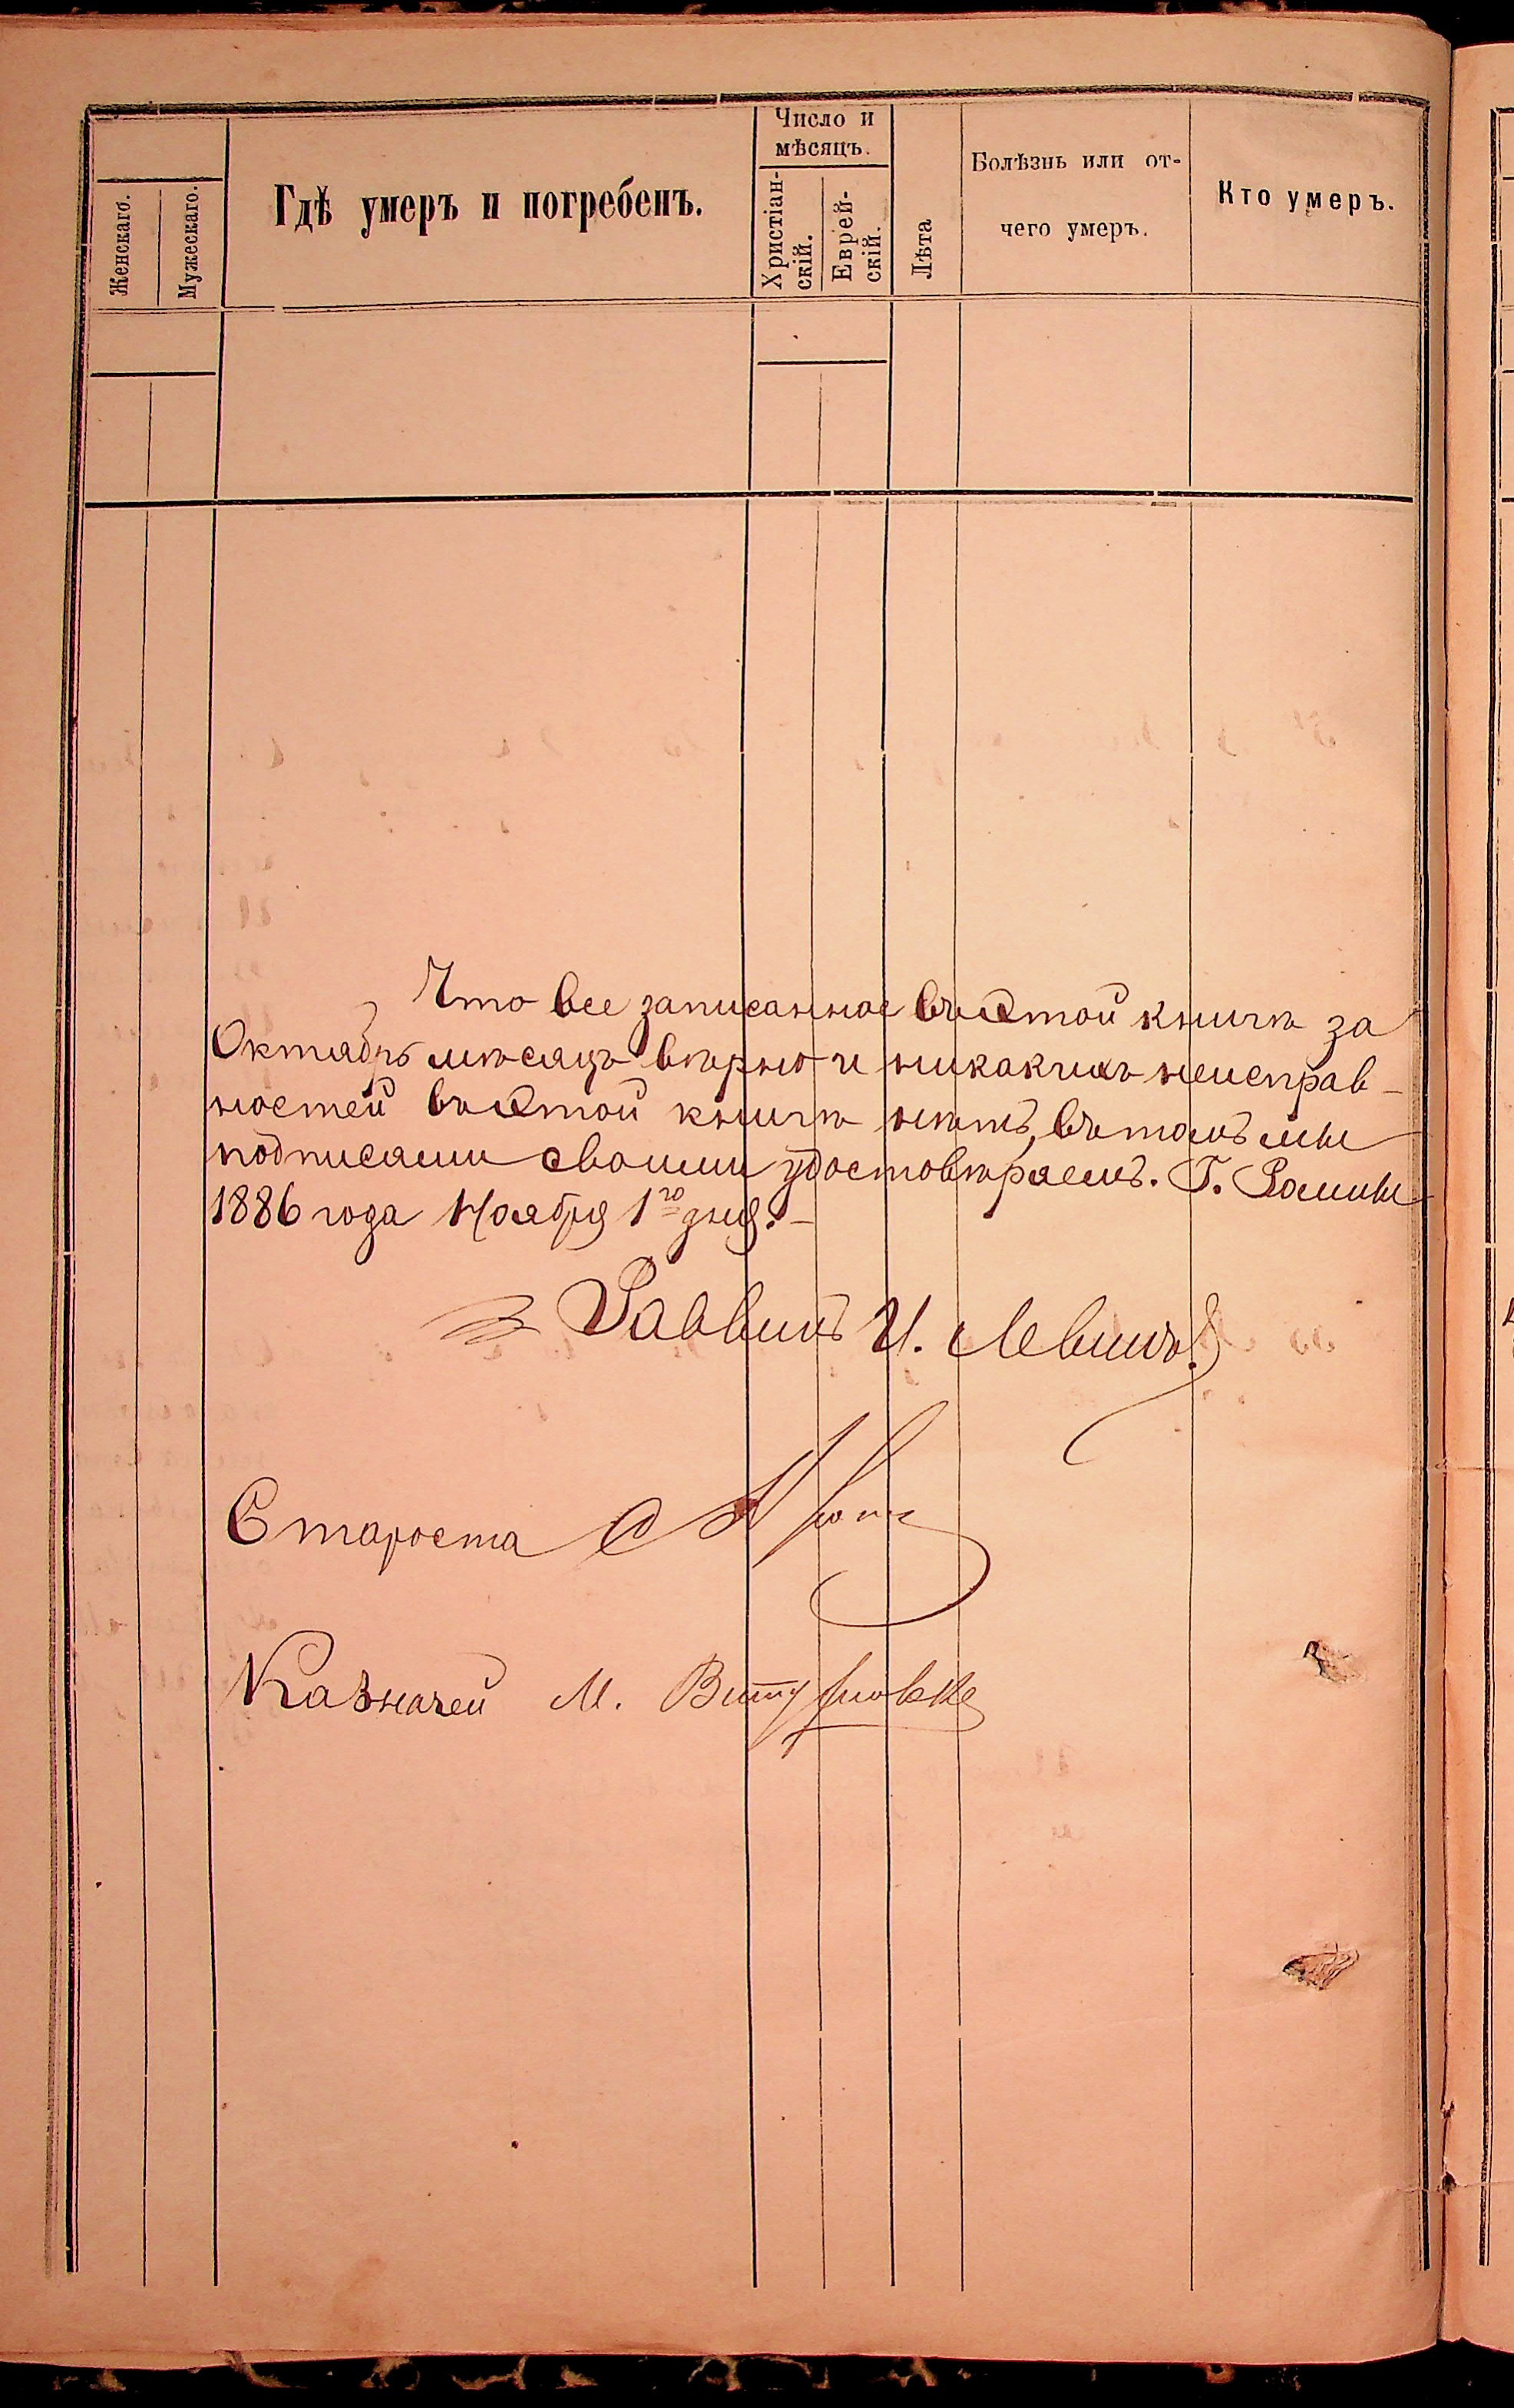 Женскаго.
Мужескаго.
Гдѣ умеръ и погребенъ.
Число и
мѣсяцъ.
Христіан-
скій.
Еврей-
скій.
Лѣта
Болѣзнь или от-
чего умеръ.
Кто умеръ.
Что все записанное въ этой книгѣ за
Октябрь мѣсяцъ вѣрно и никакихъ неисправ-
ностей въ этой книгѣ нѣтъ, въ томъ мы
подписами своими удостовѣраемъ. Г. Ромны
1886 года Ноября 1го дня. –
Раввинъ И. Левинъ.
Староста
Казначей М.